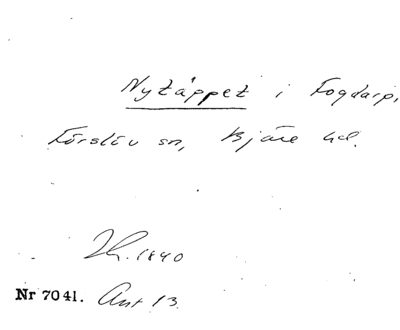 Nytäppet i Fogdarp,
Förslöv sn, Bjäre hd.
Lh. 1840
Nr 7041. Ant 13.